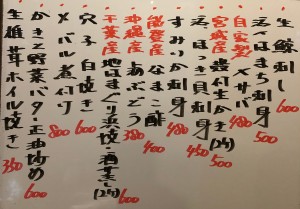 生鯨刺し 600
活〆はまち刺身 500
自家製 〆サバ 480
宮城産 殻付生かき(2ケ) 500
活ほっき貝刺身 480
すみいか刺身 480
能登産 なまこ酢 400
沖縄産 海ぶどう 450
千葉産 地はまぐり 焼・酒蒸し(2ケ) 600
穴子白焼き 600
メバル煮付 800
かきと野菜バタ正油炒め 600
生椎茸ホイル焼き 350